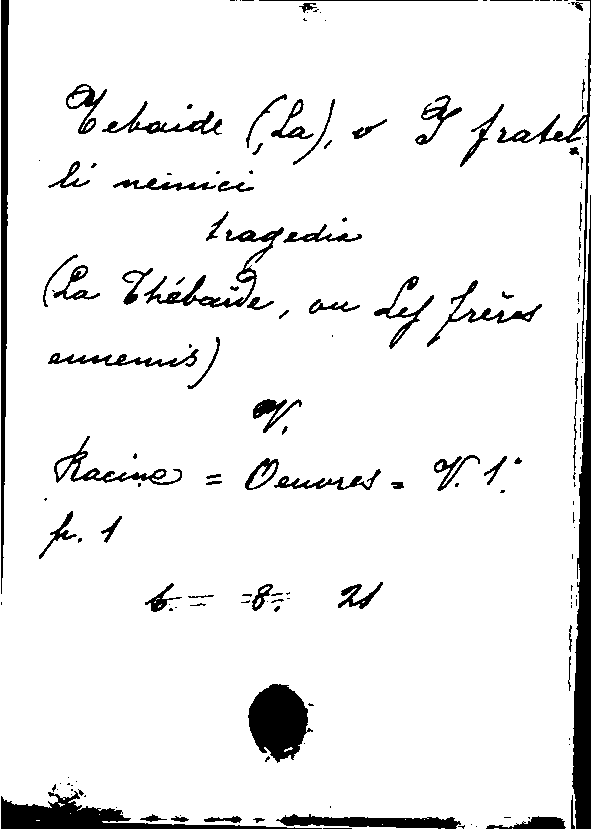 Tebaide (La), o I fratel=
li nemici
tragedia
(La Thébaïde, ou Les frères
ennemis)
V.
Racine = Oeuvres = V. 1.°
p. 1
6. = 8. 21